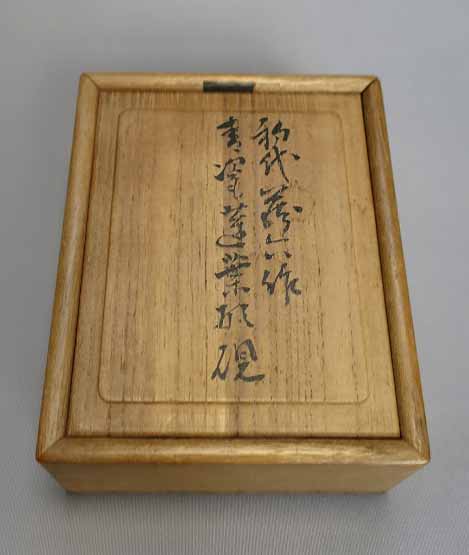 初代蔵六作
青瓷蓮葉形硯